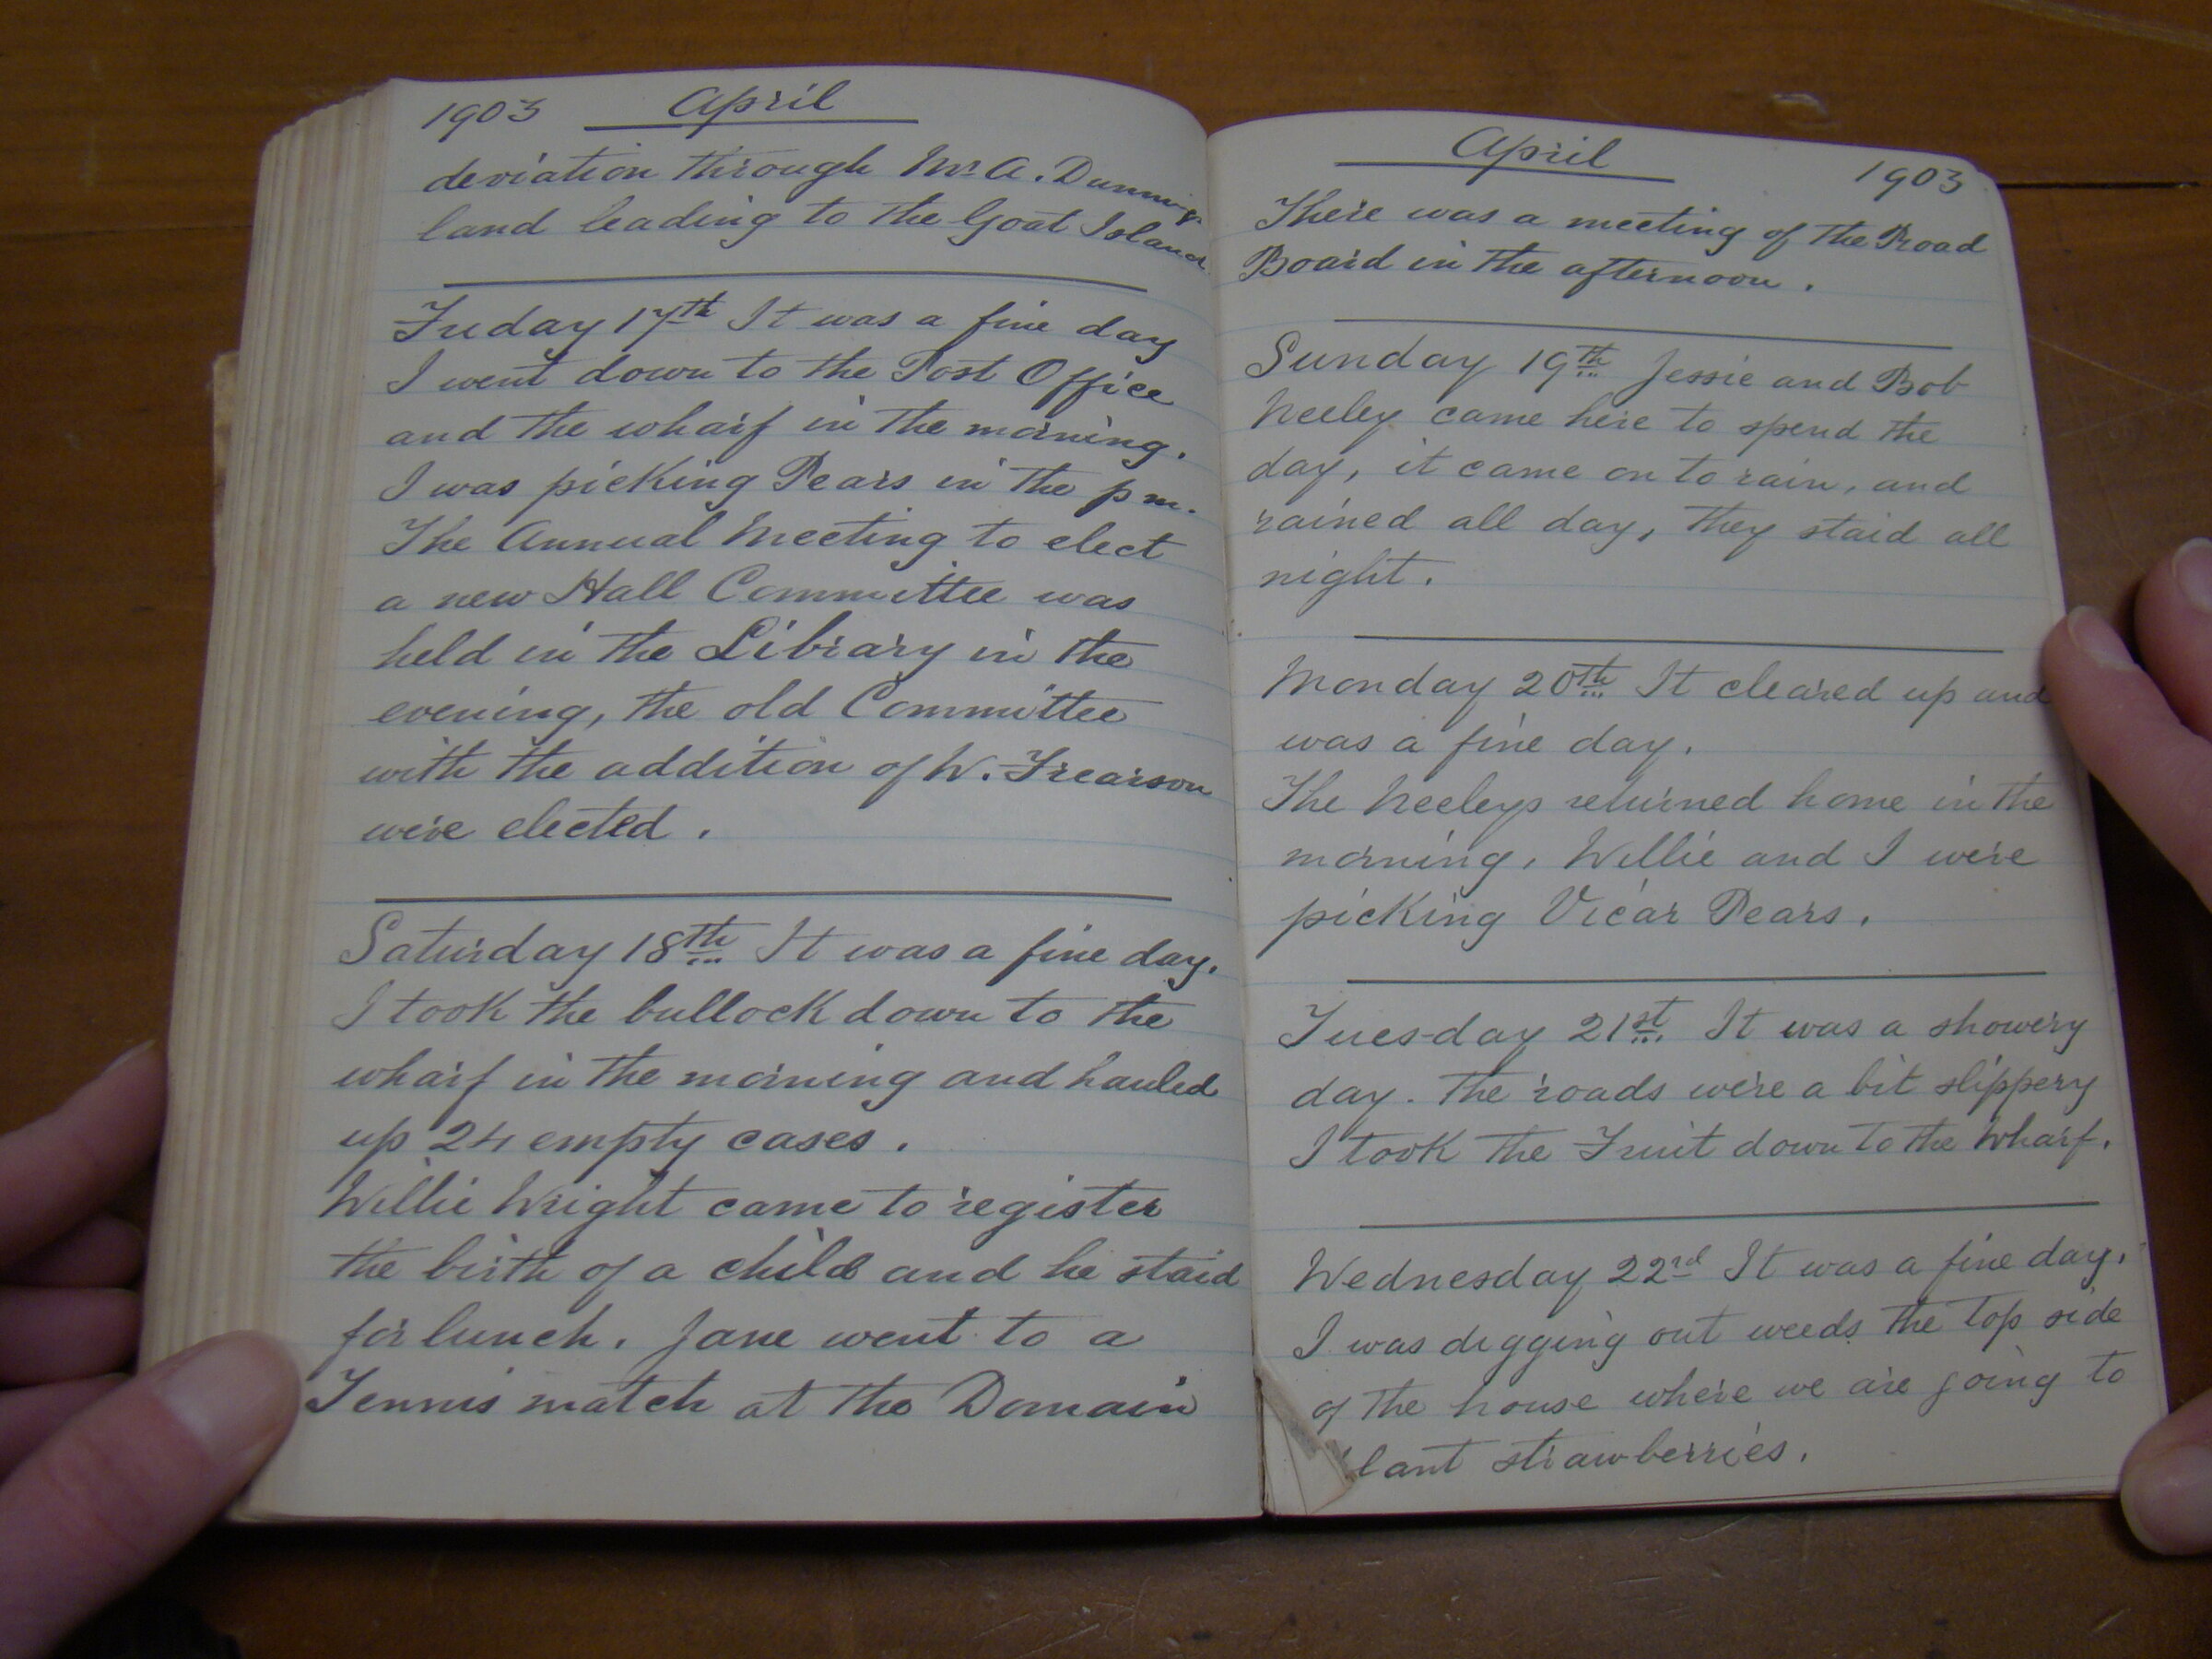 1903 April
deviation through Mr A. Dunning
land leading to the Goat Island
Friday 17th It was a fine day
I went down to the Post Office
and the wharf in the morning.
I was picking Pears in the pm.
The Annual Meeting to elect
a new Hall Committee was
held in the Library in the
evening, the old Committee
with the addition of W. Frearson
were elected.
Saturday 18th It was a fine day.
I took the bullock down to the
wharf in the morning and hauled
up 24 empty cases.
Willie Wright came to register
the birth of a child and he staid
for lunch. Jane went to a
Tennis match at the Domain
April 1903
There was a meeting of the Road
Board in the afternoon.
Sunday 19th Jessie and Bob
Neeley came here to spend the
day, it came on to rain, and
rained all day, they staid all
night.
Monday 20th It cleared up and
was a fine day.
The Neeleys returned home in the
morning, Willie and I were
picking Vicar Pears.
Tuesday 21st It was a showery
day. The roads were a bit slippery
I took the Fruit down to the Wharf.
Wednesday 22rd It was a fine day.
I was digging out weeds the top side
of the house where we are going to
plant strawberries.